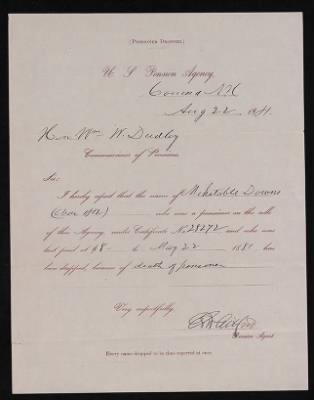 (PENSIONER DROPPED.)
U. S. Pension Agency,
Concord N.H.
Aug 22, 1881.
Hon Wm W. Dudley
Commissioner of Pensions.
Sir:
I hereby report that the name of Mehitable Downs
(War 1812) who was a pensioner on the rolls
of this Agency, under Certificate No. 28272 and who was
last paid at $8 to May 22 1881 has
been dropped, because of death of pensioner
Very respectfully,
Pension Agent.
Every name dropped to be thus reported at once.